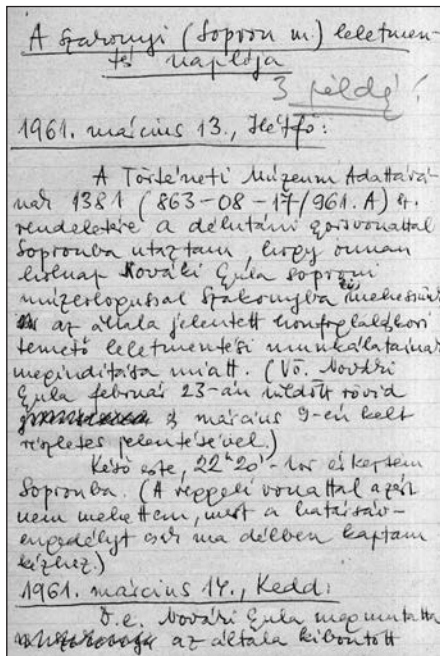 A Szakonyi (Sopron m.) leletmen-
tés naplója
3 példá
1961. március 13., Hétfő:
A Történeti Múzeum Adattárá-
nak 1381 (863-08-17/961. A) sz.
rendeletére a délutáni gyorsvonattal
Sopronba utaztam, hogy onnan
holnap Nováki Gyula soproni
muzeológussal Szakonyba kimehessünk
az általa jelentett honfoglaláskori
temető leletmentési munkálatainak
megindítása miatt. (Vö. Nováki
Gyula február 23-án küldött rövid
s március 9-én kelt
részletes jelentésével.)
Késő este, 22h20'-kor érkeztem
Sopronba. (A reggeli vonattal azért
nem mehettem, mert a határsáv-
engedélyt csak ma délben kaptam
kézhez.)
1961. március 14., Kedd:
D.e. Nováki Gyula megmutatta
az általa kibontott